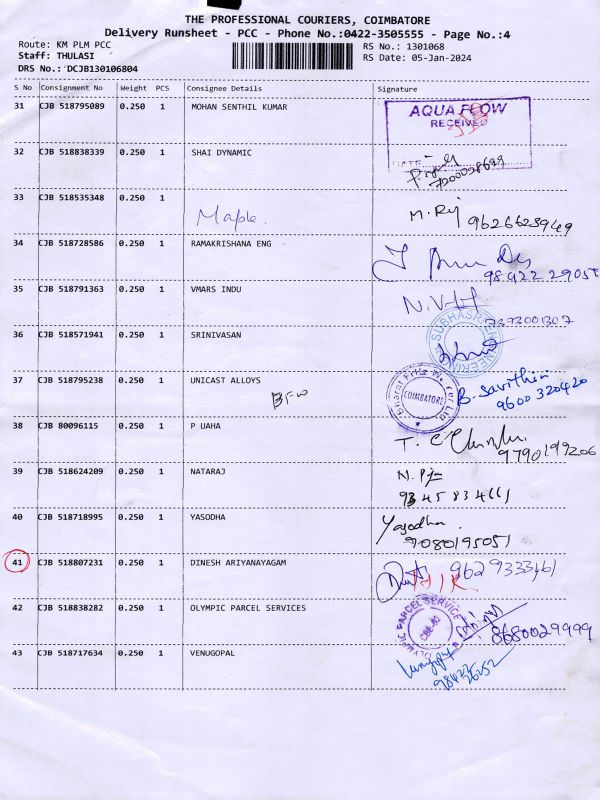 THE PROFESSIONAL COURIERS, COIMBATORE
Delivery Runsheet - PCC - Phone No.:0422-3505555 - Page No.:4
Route: KM PLM PCC
RS No.: 1301068
Staff: THULASI
RS Date: 05-Jan-2024
DRS No.: DCJB130106804
S No Consignment No Weight PCS Consignee Details Signature
31 CJB 518795089 0.250 1 MOHAN SENTHIL KUMAR
AQUA FLOW
RECEIVED
32 CJB 518838339 0.250 1 SHAI DYNAMIC
DATE
33 CJB 518535348 0.250 1
Maple.
M. Raj
9626623949
34 CJB 518728586 0.250 1 RAMAKRISHANA ENG
35 CJB 518791363 0.250 1 VMARS INDU
7373001307
36 CJB 518571941 0.250 1 SRINIVASAN
37 CJB 518795238 0.250 1 UNICAST ALLOYS
BFW
COIMBATORE
B. Savithiri
9600320420
38 CJB 80096115 0.250 1 P UAHA
9790199206
39 CJB 518624209 0.250 1 NATARAJ
9345834661
40 CJB 518718995 0.250 1 YASODHA
Yasodha.
9080195051
41 CJB 518807231 0.250 1 DINESH ARIYANAYAGAM
42 CJB 518838282 0.250 1 OLYMPIC PARCEL SERVICES
OLYMPIC PARCEL SERVICE
8680029999
43 CJB 518717634 0.250 1 VENUGOPAL